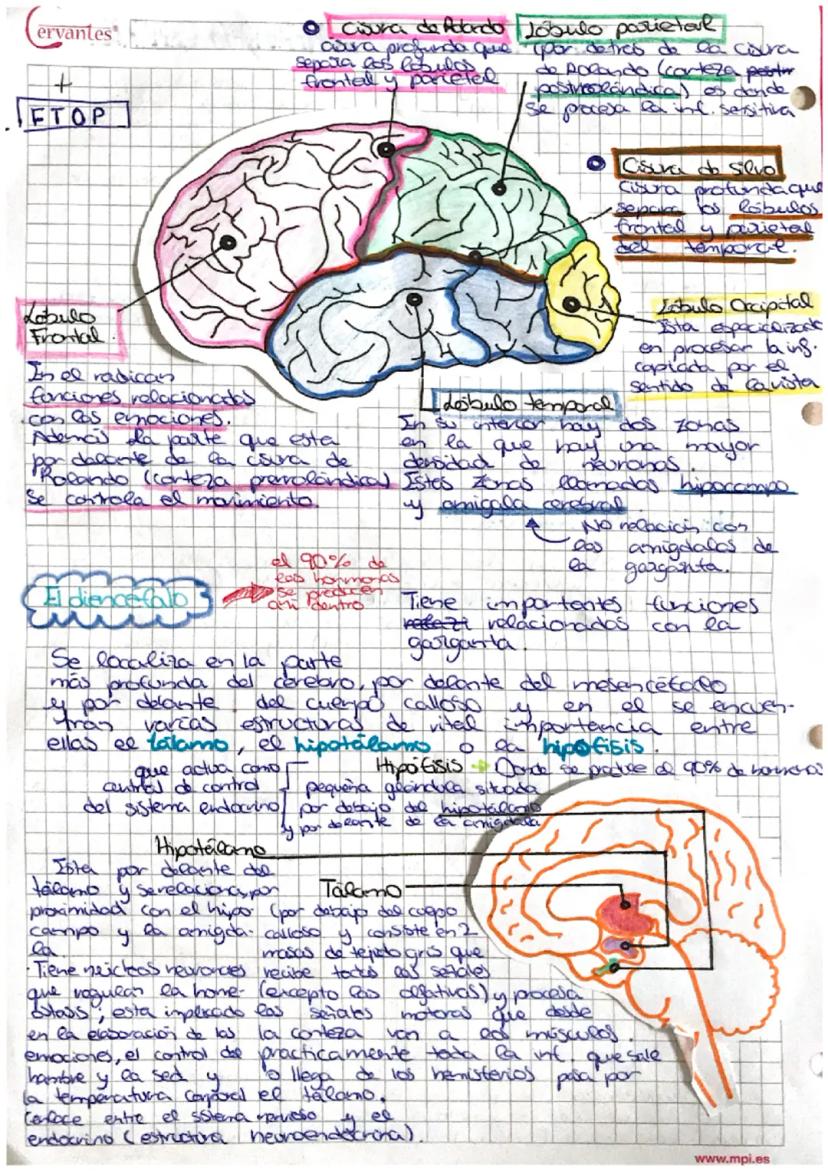 Cervantes
+
FTOP
Cisura de Rolando
cisura profunda que
separa los lóbulos
frontal y parietal
Lóbulo parietal
(por detrás de la cisura
de Rolando (corteza
postrrolándica) es donde
se procesa la inf. sensitiva
Cisura de Silvio
Cisura profunda que
separa los lóbulos
frontal y parietal
del temporal.
Lóbulo
Frontal.
En el radican
funciones relacionadas
con las emociones.
Además la parte que esta
por delante de la cisura de
Rolando (corteza prerrolándica)
se controla el movimiento.
Lóbulo Occipital
Esta especializado
en procesar la inf.
captada por el
sentido de la vista
Lóbulo temporal
En su interior hay dos zonas
en la que hay una mayor
densidad de neuronas.
Estas zonas llamadas hipocampo
y amígala cerebral
No relación con
las amígdalas de
la garganta.
El diencéfalo
el 90% de
las hormonas
se producen
ahí dentro
Tiene importantes funciones
relacionadas con la
garganta.
Se localiza en la parte
más profunda del cerebro, por delante del mesencéfalo
y por delante del cuerpo calloso y en el se encuen-
tran varias estructuras de vital importancia entre
ellas el tálamo, el hipotálamo o la hipófisis.
Hipófisis → Donde se produce el 90% de hormonas
que actua como
central de control
del sistema endocrino
pequeña glándula situada
por debajo del hipotálamo
y por delante de la amígdala
Hipotálamo
Esta por delante del
tálamo y se relaciona por
proximidad con el hipo-
campo y la amígda-
la.
Tiene núcleos neuronales
que regulan la home-
ostasis, esta implicado
en la elaboración de las
emociones, el control del
hambre y la sed y
la temperatura corporal
(enlace entre el sistema nervioso y el
endocrino (estructura neuroendocrina).
Tálamo
(por debajo del cuerpo
calloso y consiste en 2
masas de tejido gris que
recibe todas las señales
(excepto las olfativas) y procesa
las señales motoras que desde
la corteza van a los músculos.
practicamente toda la inf. que sale
o llega de los hemisferios pasa por
el tálamo.
www.mpi.es